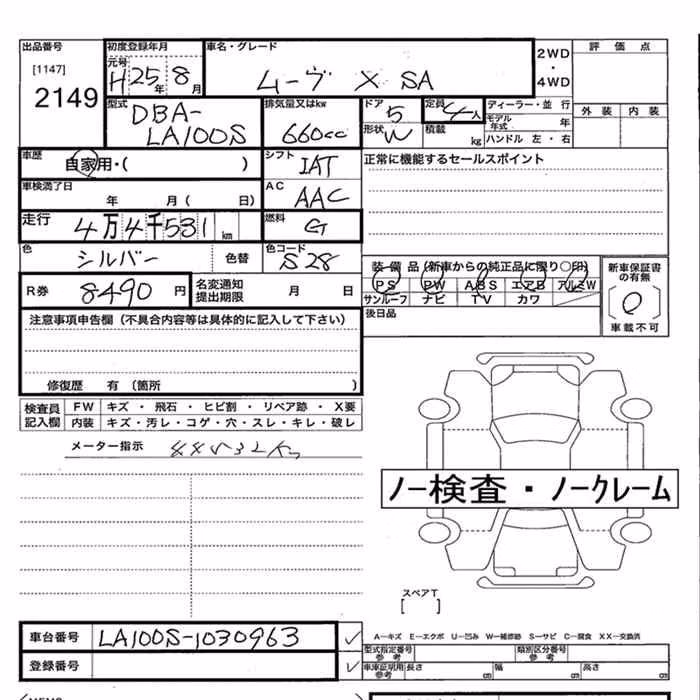 出品番号 初度登録年月 車名・グレード 2WD・4WD 評価点
[1147] 元号 H25年8月 ムーヴ X SA
2149
外装 内装
型式 DBA-LA100S 排気量又はkw 660cc ドア 5 定員 4人 ディーラー・並行
形状 W 積載 kg モデル年式 年
ハンドル 左・右
車歴 自家用・( ) シフト IAT 正常に機能するセールスポイント
車検満了日 年 月( 日) AC AAC
走行 4万4千531km 燃料 G
色 シルバー 色替 色コード S28 装備品(新車からの純正品に限り○印) 新車保証書の有無
PS PW ABS エアB アルミW
R券 8490円 名変通知提出期限 月 日 サンルーフ ナビ TV カワ
車載不可
注意事項申告欄(不具合内容等は具体的に記入して下さい) 後日品
修復歴 有(箇所 )
検査員記入欄 FW キズ・飛石・ヒビ割・リペア跡・X要
内装 キズ・汚レ・コゲ・穴・スレ・キレ・破レ
メーター指示
ノー検査・ノークレーム
スペアT
[ ]
車台番号 LA100S-1030963 ✓ A−キズ E−エクボ U−凹み W−補修跡 S−サビ C−腐食 XX−交換済
型式指定番号 参考 類別区分番号 参考
登録番号 ✓ 車庫証明用 参考 長さ cm 幅 cm 高さ cm